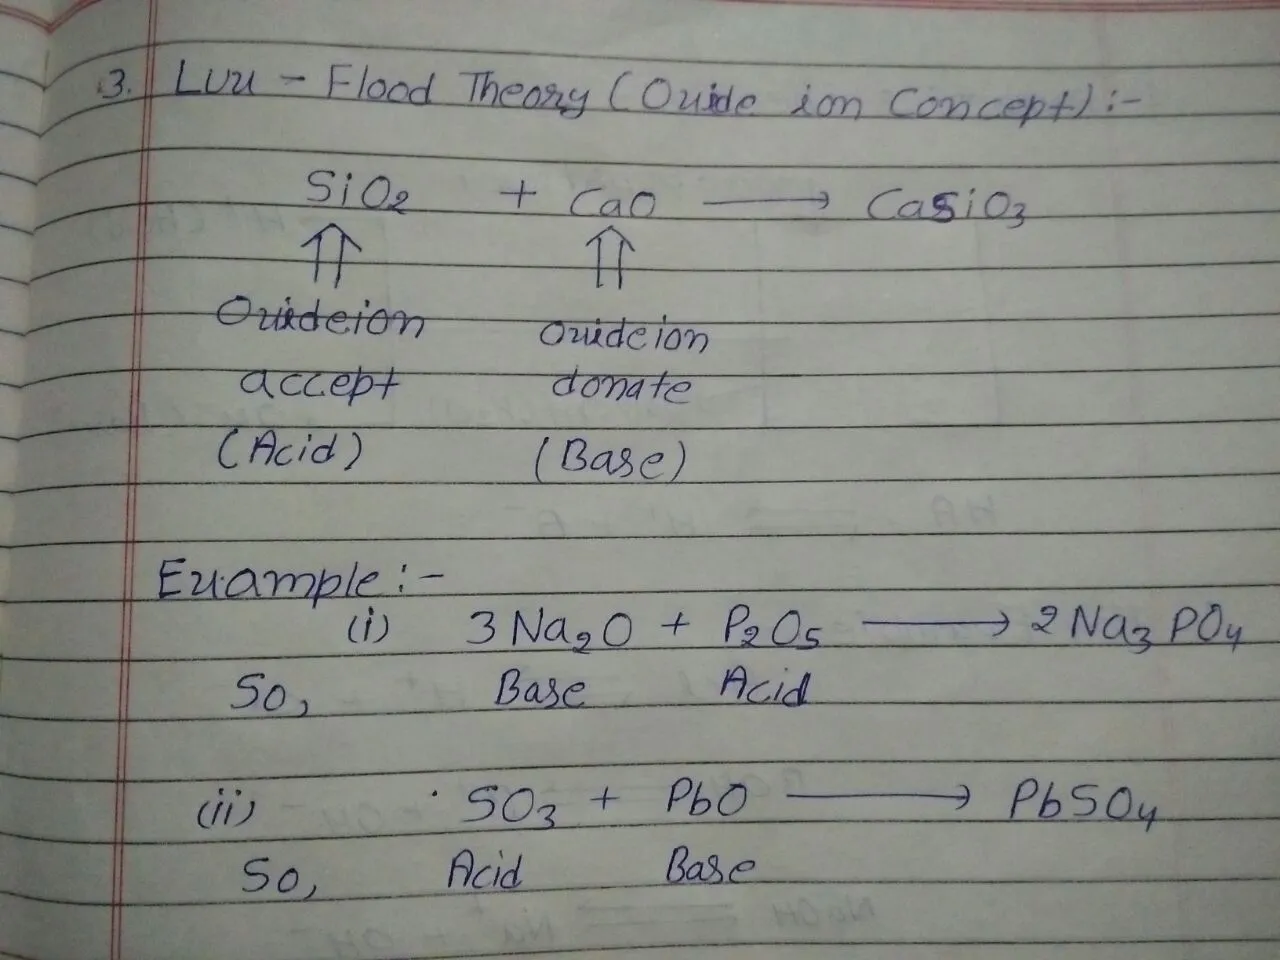 3. Lux - Flood Theory (Oxide ion Concept) :-
SiO2 + CaO ⟶ CaSiO3
⇑ ⇑
Oxideion oxide ion
accept donate
(Acid) (Base)
Example :-
(i) 3 Na2O + P2O5 ⟶ 2 Na3 PO4
So, Base Acid
(ii) SO3 + PbO ⟶ PbSO4
So, Acid Base